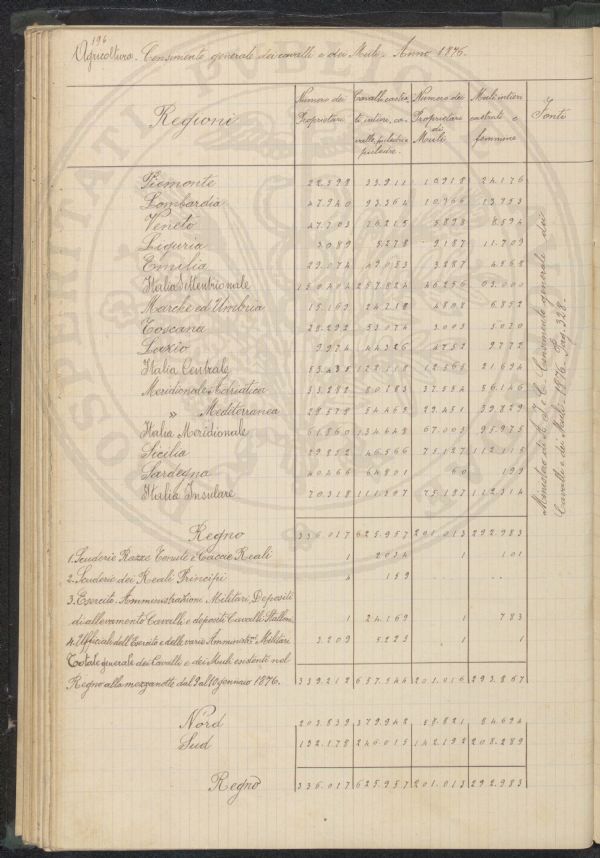 196
Agricoltura. Censimento generale dei cavalli e dei Muli. Anno 1876.
Regioni
Numero dei Proprietari
Cavalli castra-ti interi, ca-valle, puledri e puledre.
Numero dei Proprietari di Muli
Muli interi castrati e femmine
Fonti
Piemonte 22.598 33.911 10.918 24.176
Lombardia 47.940 93.364 10.966 13.753
Veneto 47.703 76.215 5.898 8.594
Liguria 3.089 5.278 9.187 11.709
Emilia 29.074 49.053 3.287 4.868
Italia Settentrionale 150.404 257.824 40.256 63.000
Marche ed Umbria 15.169 24.718 4.808 6.852
Toscana 28.292 53.074 3.005 5.070
Lazio 9.974 44.326 4.752 9.772
Italia Centrale 53.435 122.118 12.565 21.694
Meridionale Adriatica 33.282 80.183 37.554 56.146
" Mediterranea 28.578 54.465 29.451 39.829
Italia Meridionale 61.860 134.648 67.005 95.975
Sicilia 29.852 46.566 75.127 112.115
Sardegna 40.466 64.801 60 199
Italia Insulare 70.318 111.367 75.187 112.314
Regno 336.017 625.957 201.013 292.983
1. Scuderie Razze Tenute e Caccie Reali 1 2034 1 101
2. Scuderie dei Reali Principi 4 159 ..
3. Esercito. Amministrazioni Militari, Depositi
di allevamento Cavalli e depositi Cavalli Stalloni 1 24.169 1 783
4. Ufficiale dell'Esercito e delle varie Amministr.ⁿⁱ Militari 3.209 5.225 1 1
Totale generale dei Cavalli e dei Muli esistente nel
Regno alla mezzanotte dal 9 al 10 gennaio 1876. 339.212 657.544 201.016 293.867
Nord 203.839 379.942 58.821 84.694
Sud 132.178 246.015 142.192 208.289
Regno 336.017 625.957 201.013 292.983
Ministero di A. I. C. Censimento generale dei
Cavalli e dei Muli 1876. Pag. 328.